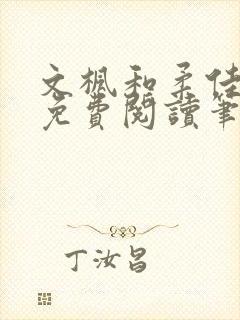 文楓和柔佳
免費閱讀筆
丁汝昌